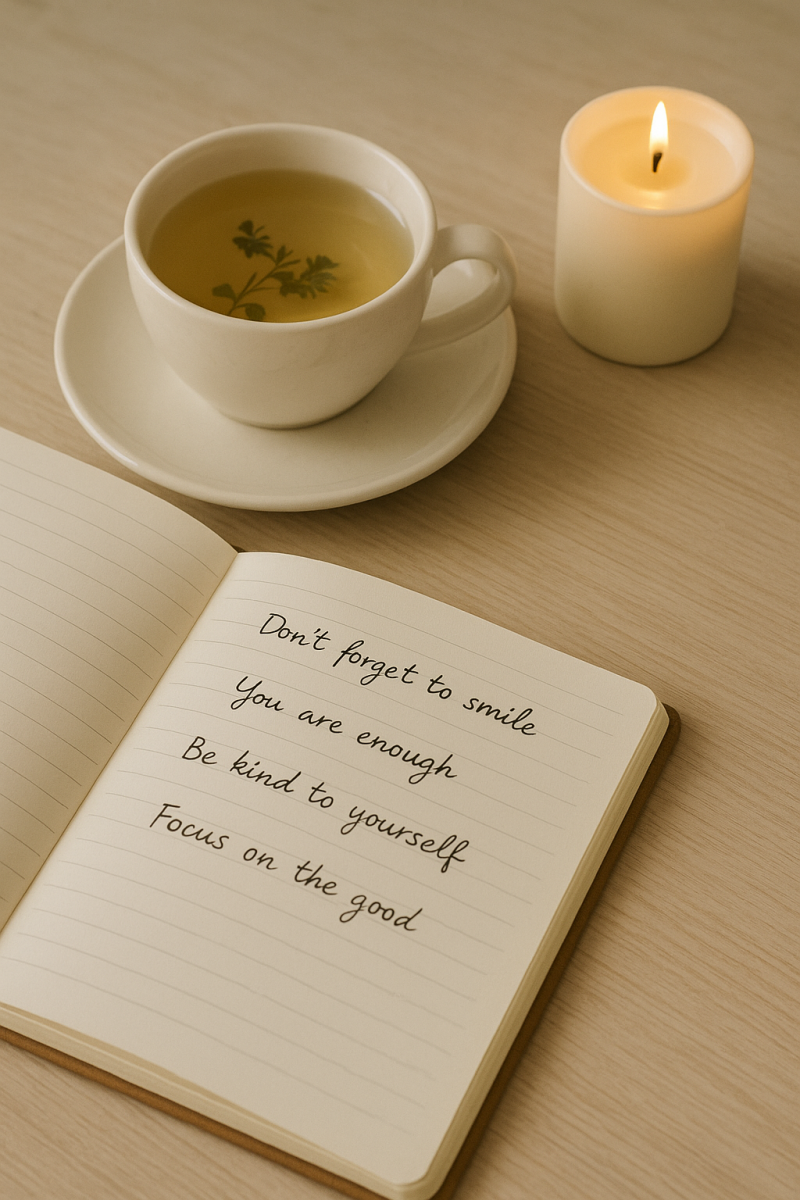 Don't forget to smile
You are enough
Be kind to yourself
Focus on the good